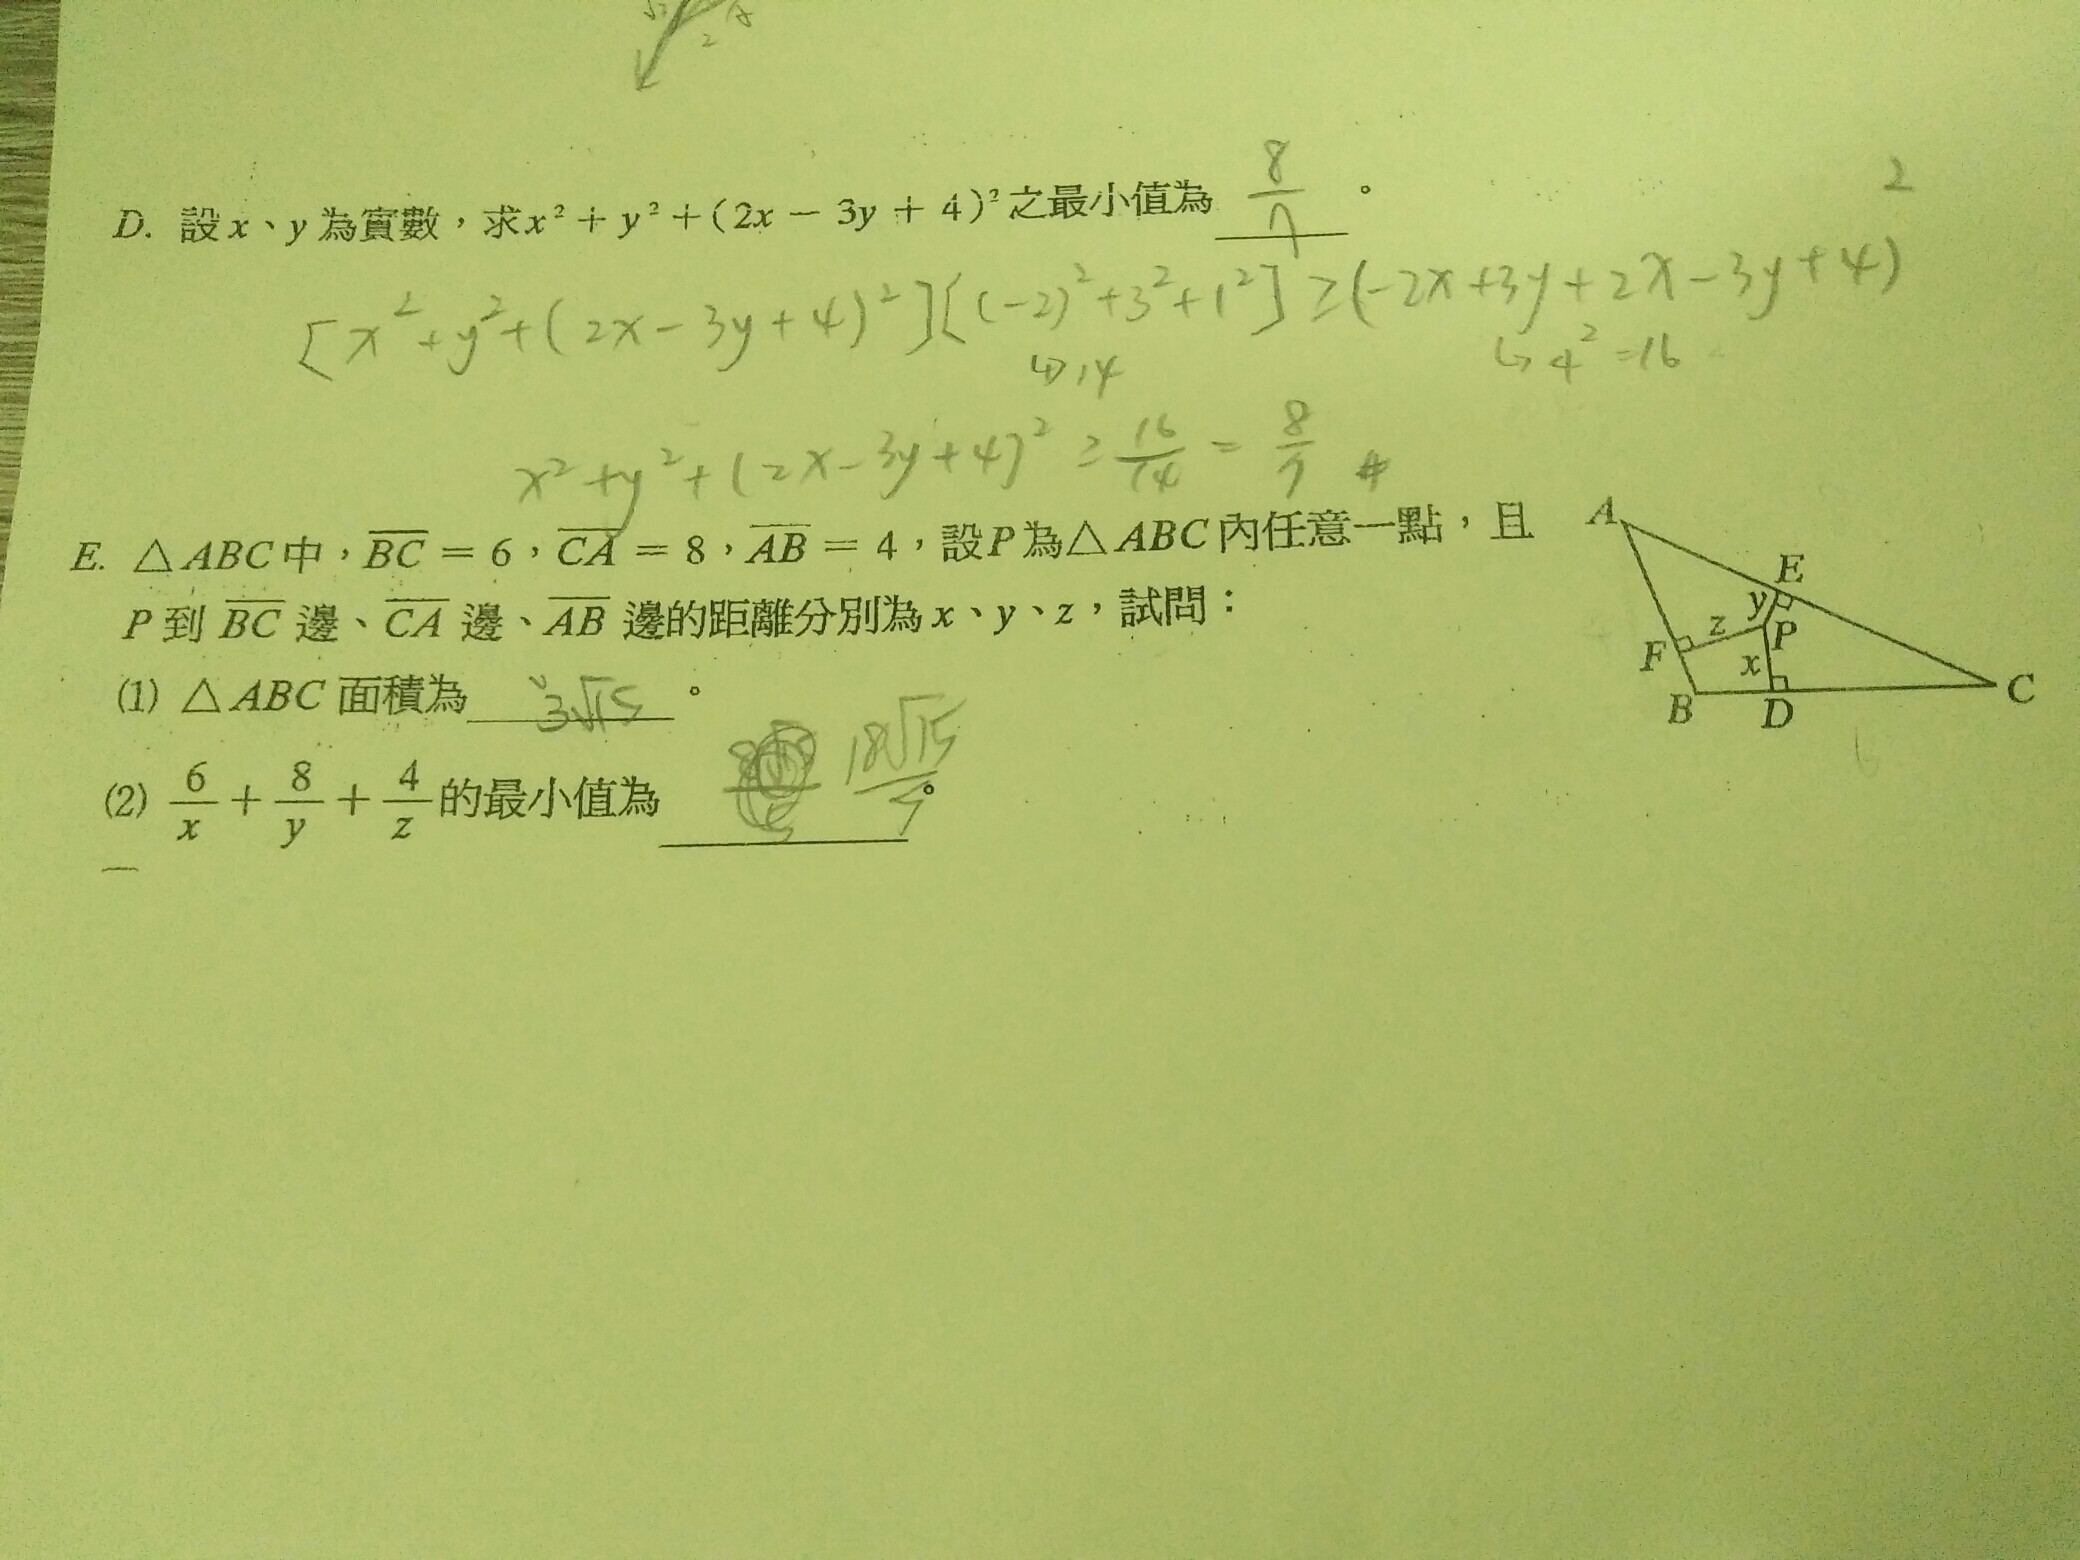 2
D. 設x、y為實數，求x²+y²+(2x－3y+4)²之最小值為 8/7 。
[x²+y²+(2x-3y+4)²][(-2)²+3²+1²]≥(-2x+3y+2x-3y+4)²
↳14 ↳4²=16
x²+y²+(2x-3y+4)²≥16/14=8/7 #
E. △ABC中，BC=6，CA=8，AB=4，設P為△ABC內任意一點，且
P到BC邊、CA邊、AB邊的距離分別為x、y、z，試問：
(1) △ABC面積為 3√15 。
(2) 6/x+8/y+4/z的最小值為 18√15/5 。
A
E
y
z
P
F
x
B
D
C